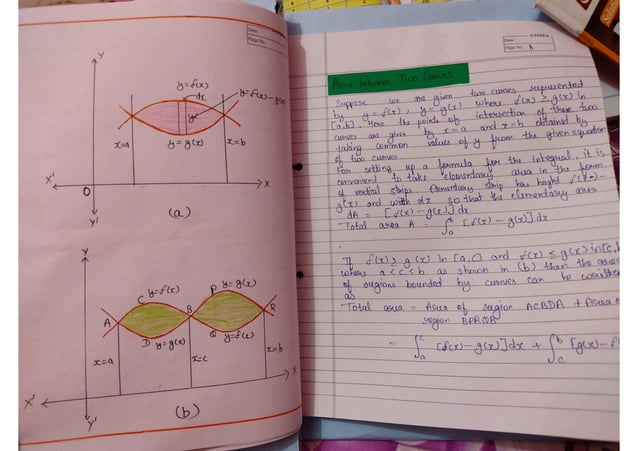 Date:
Page No.
Y
y=f(x)
dx
y=f(x)-g(x)
y
y=g(x)
x=a
x=b
X'
O
X
Y'
(a)
Y
C
y=f(x)
P
y=g(x)
A
B
R
D
y=g(x)
Q
y=f(x)
x=a
x=c
x=b
X'
X
Y'
(b)
Date:
Page No. 8
Area between Two Curves
Suppose we are given two curves represented
by y=f(x), y=g(x) where f(x) ≥ g(x) in
[a,b]. Here the points of intersection of these two
curves are given by x=a and x=b obtained by
taking common values of y from the given equation
of two curves
For setting up a formula for the integral, it is
convenient to take elementary area in the form
of vertical strips. Elementary strip has height f(x)-
g(x) and width dx so that the elementary area
dA = [f(x)-g(x)]dx
Total area A = ∫ₐᵇ [f(x)-g(x)]dx
If f(x) ≥ g(x) in [a,c] and f(x) ≤ g(x) in [c,b]
where a<c<b as shown in (b) then the area
of regions bounded by curves can be
as
Total area = Area of region ACBDA + Area of
region BPRQB
= ∫ₐᶜ [f(x)-g(x)]dx + ∫꜀ᵇ [g(x)-f